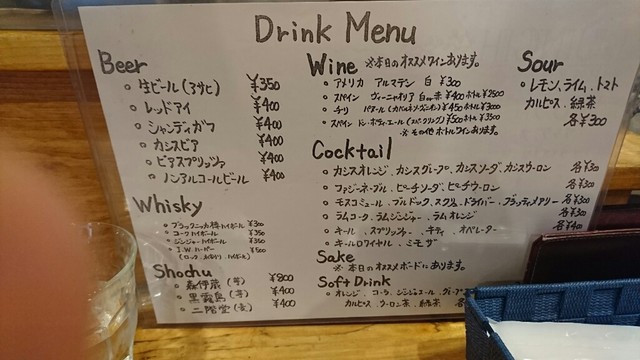 Drink Menu
Beer
・生ビール(アサヒ) ¥350
・レッドアイ ¥400
・シャンディガフ ¥400
・カシスビア ¥400
・ビアスプリッツァ ¥400
・ノンアルコールビール ¥400
Whisky
・ブラックニッカ樽ハイボール ¥300
・コークハイボール ¥350
・ジンジャーハイボール ¥350
・J.W.ハーパー ¥500
Shochu ¥800
・森伊蔵(芋)
・黒霧島(芋) ¥400
・二階堂(麦) ¥400
Wine ※本日のオススメワインあります。
・アメリカ アルマデン 白 ¥300
・スペイン ヴィーニャオリア 白or赤 ¥400 ボトル¥2500
・チリ ¥450 ボトル¥3000
・スペイン ¥500 ボトル¥3500
※その他ボトルワインあります。
Cocktail
・カシスオレンジ、カシスグレープ、カシスソーダ、カシスウーロン 各¥300
・ファジーネーブル、ピーチソーダ、ピーチウーロン 各¥300
・モスコミュール、ブルドッグ、スクリュードライバー、ブラッディメアリー 各¥300
・ラムコーク、ラムジンジャー、ラムオレンジ 各¥300
・キール、スプリッツァー、キティ、オペレーター 各¥400
・キールロワイヤル、ミモザ
Sake
※本日のオススメボードにあります。
Soft Drink
・オレンジ、コーラ、ジンジャエール、グレープ
カルピス、ウーロン茶、緑茶 各
Sour
・レモン、ライム、トマト
カルピス、緑茶
各¥300